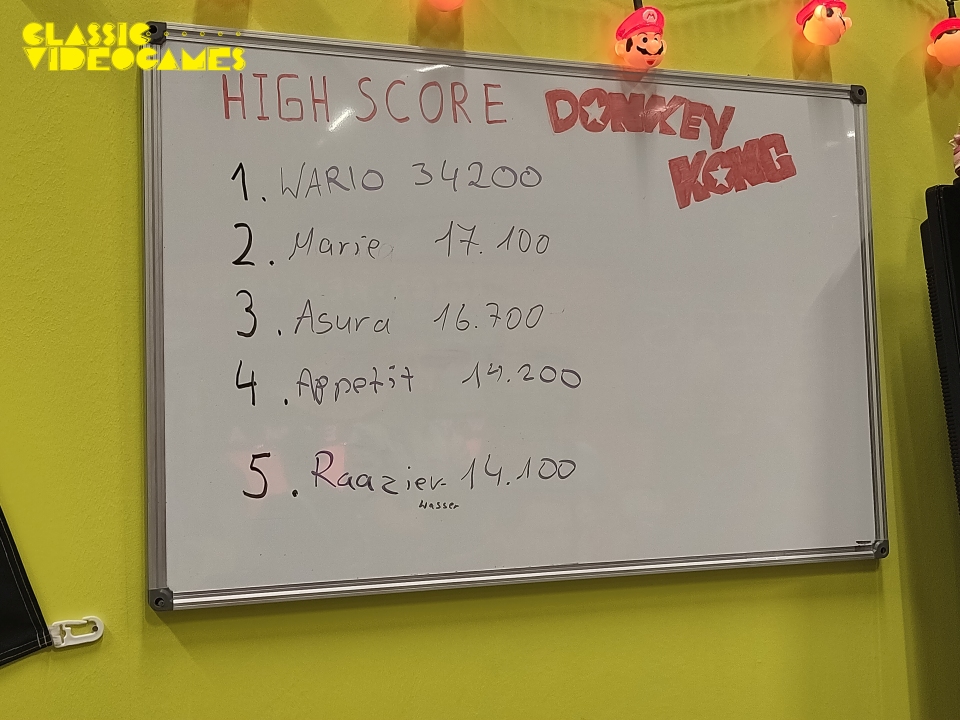 CLASSIC
VIDEOGAMES
HIGH SCORE DONKEY
KONG
1. WARIO 34200
2. Marie 17.100
3. Asura 16.700
4. Appetit 14.200
5. Raazier 14.100
Wasser